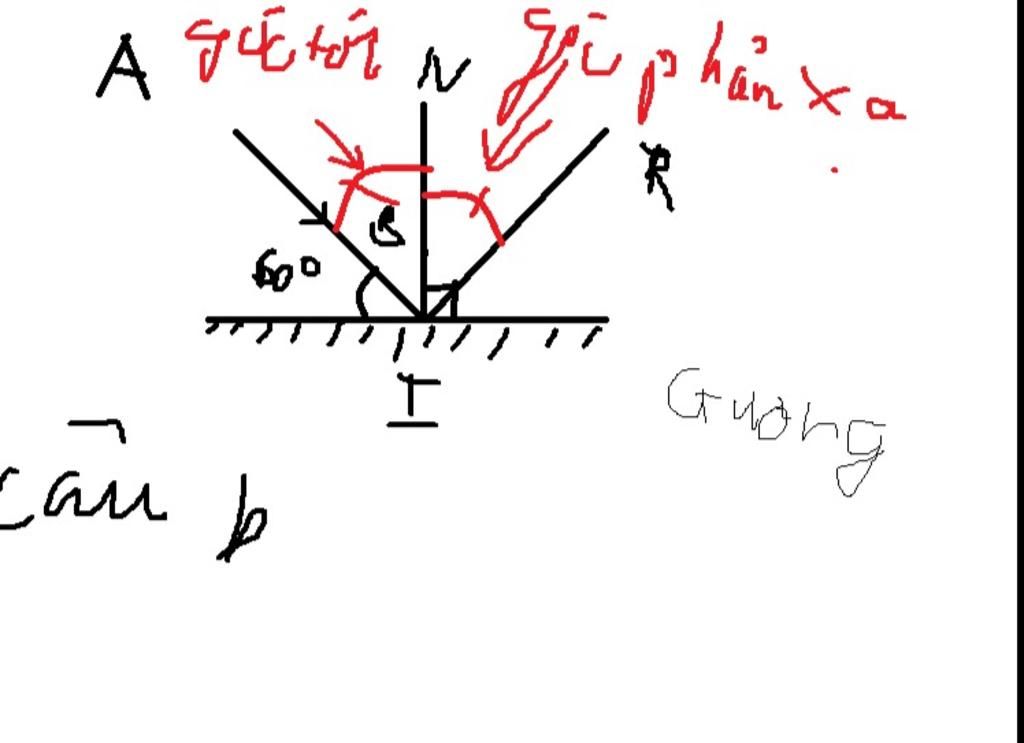 A góc tới N góc phản xạ
R
60°
I
Gương
câu b